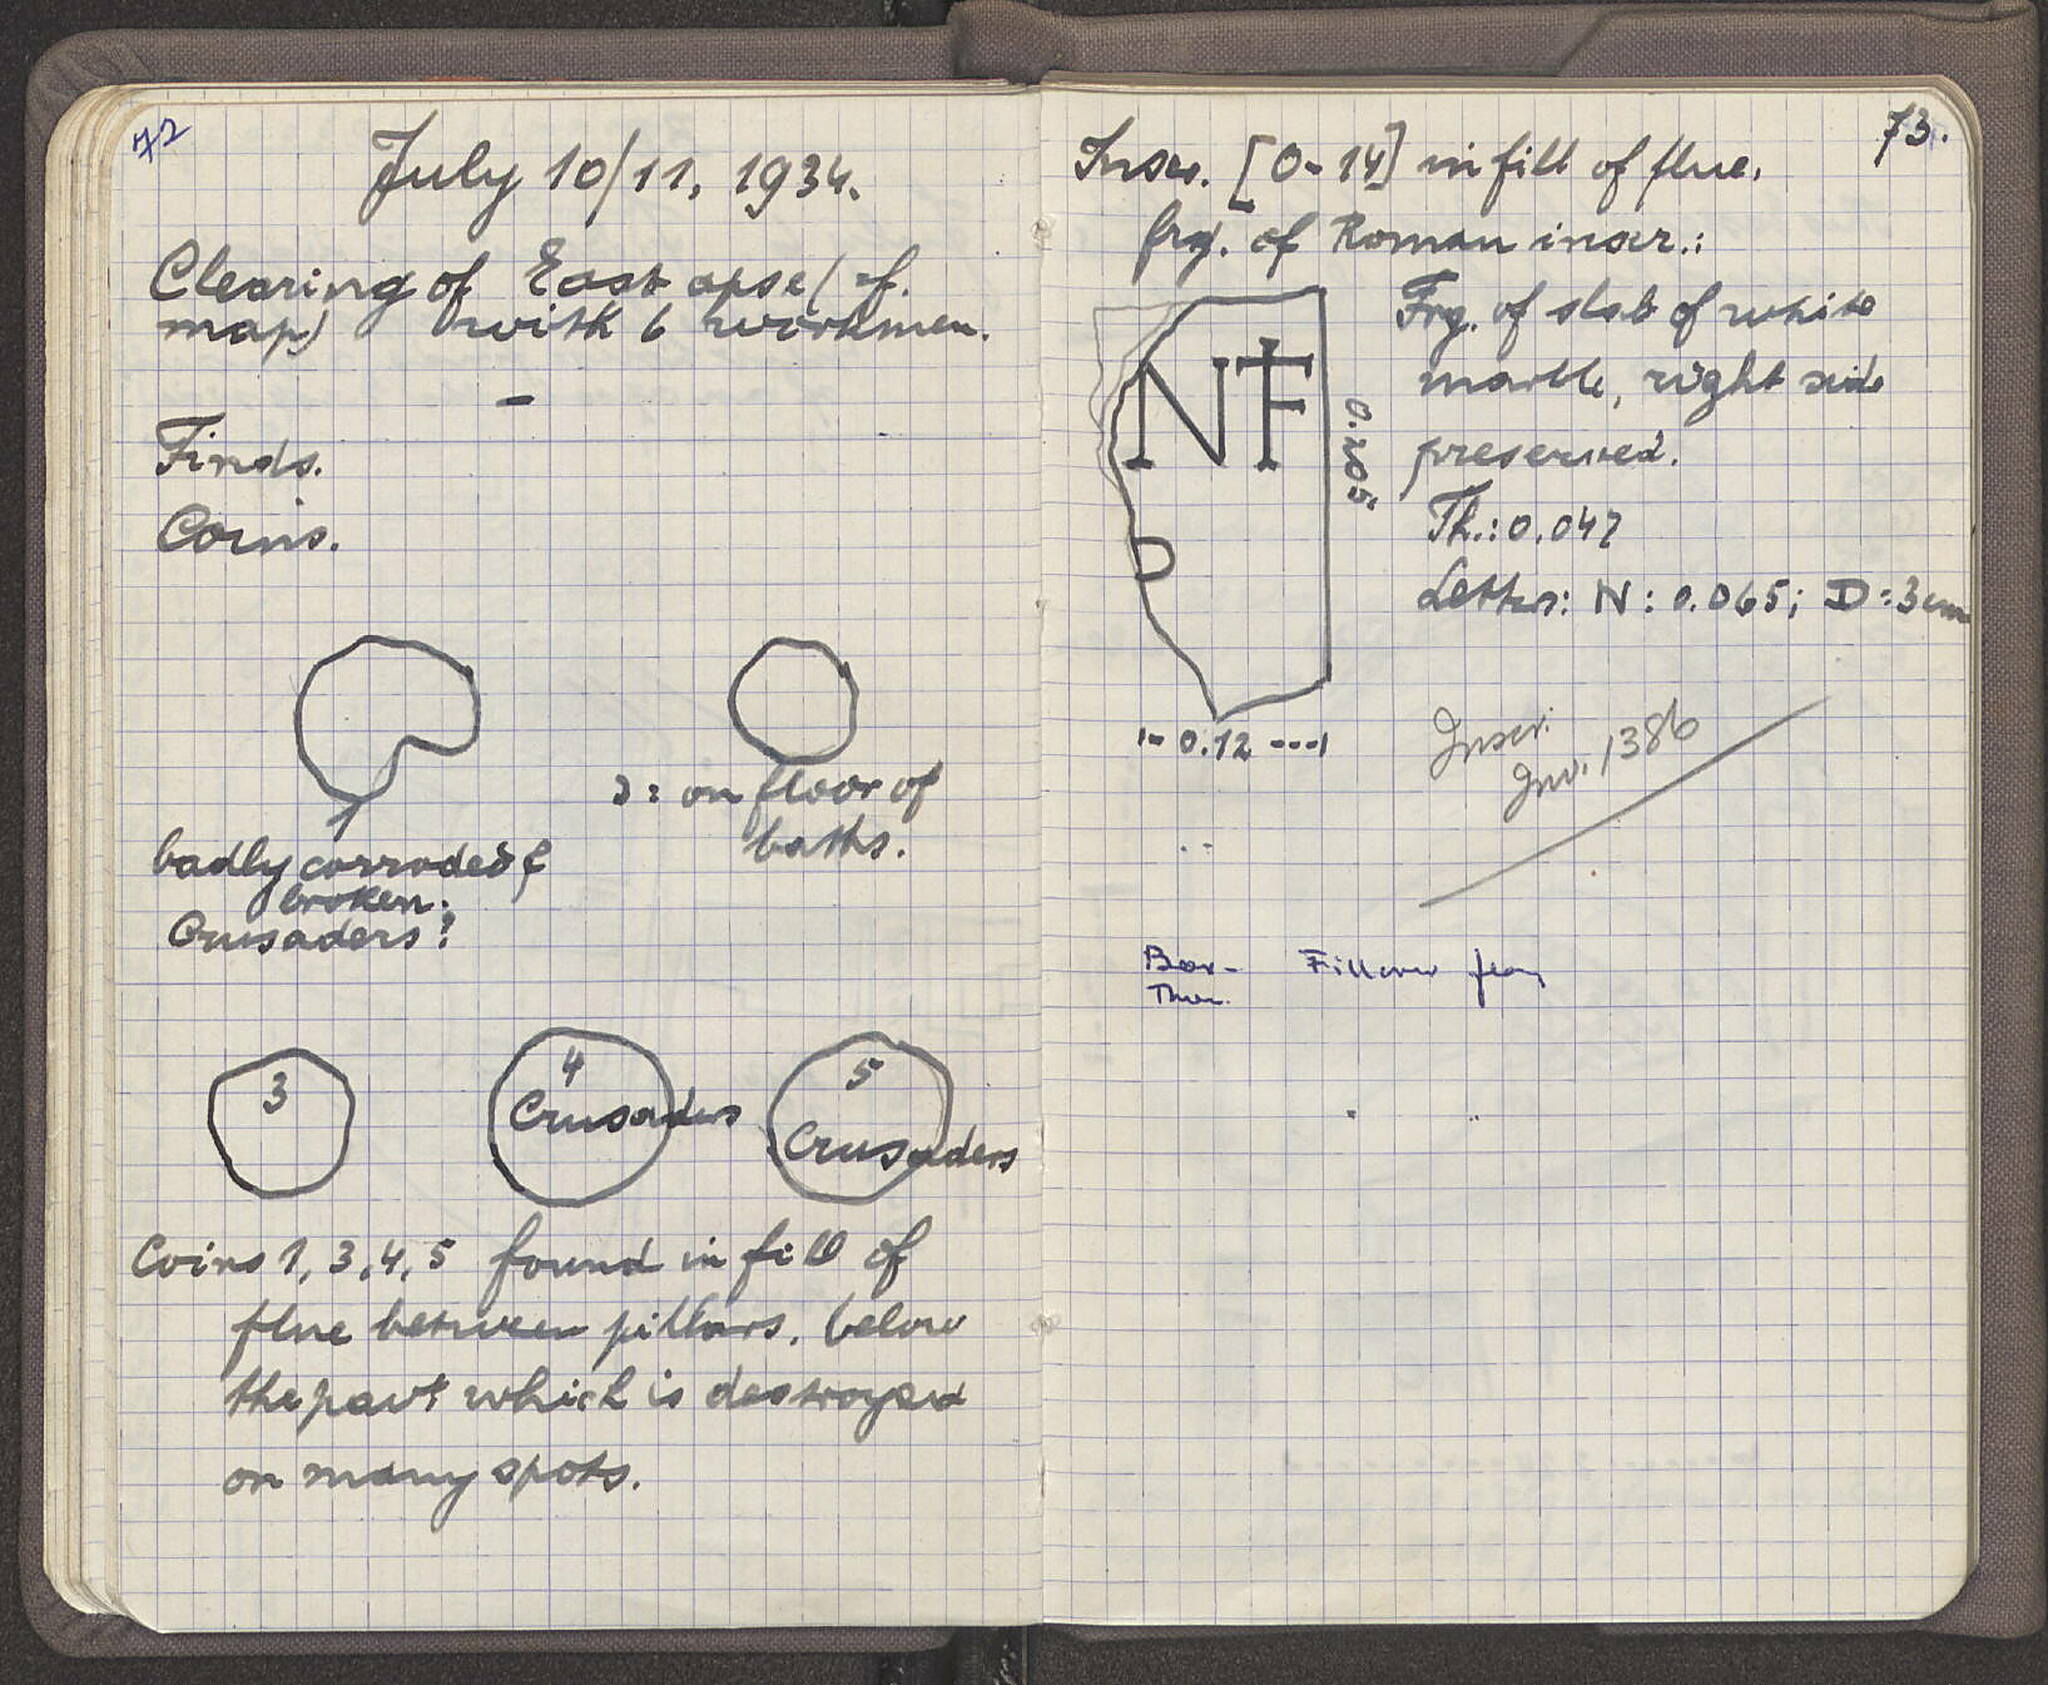 72
July 10/11, 1934.
Clearing of East apse (cf.
map) with 6 workmen.
-
Finds.
Coins.
2: on floor of
baths.
1
badly corroded &
broken.
Crusaders?
3
4
Crusaders
5
Crusaders
Coins 1, 3, 4, 5 found in fill of
flue between pillars, below
the pavt which is destroyed
on many spots.
73.
Inscr. [0-14] in fill of flue.
frg. of Roman inscr.:
NTF
D
0.205
0.12
Frg. of slab of white
marble, right side
preserved.
Th.: 0.047
Letters: N: 0.065; D: 3 cm
Inscr.
Inv. 1386
Fill over